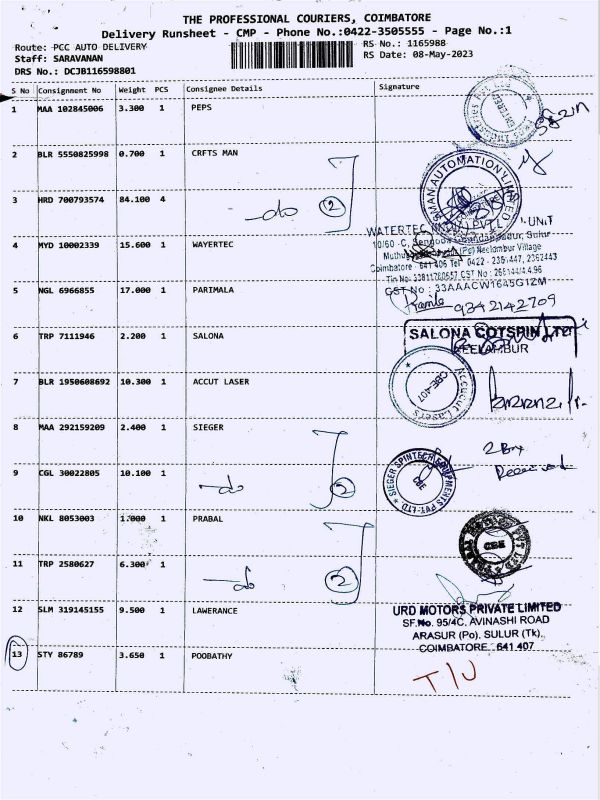 THE PROFESSIONAL COURIERS, COIMBATORE
Delivery Runsheet - CMP - Phone No.:0422-3505555 - Page No.:1
Route: PCC AUTO DELIVERY
RS No.: 1165988
Staff: SARAVANAN
RS Date: 08-May-2023
DRS No.: DCJB116598801
S No Consignment No Weight PCS Consignee Details Signature
1 MAA 102845006 3.300 1 PEPS
2 BLR 5550825998 0.700 1 CRFTS MAN
3 HRD 700793574 84.100 4 -do (2)
4 MYD 10002339 15.600 1 WAYERTEC
5 NGL 6966855 17.000 1 PARIMALA
9342142709
6 TRP 7111946 2.200 1 SALONA
SALONA COTSPIN
NEELAMBUR
7 BLR 1950608692 10.300 1 ACCUT LASER
Accucut Lasers
CBE-407
8 MAA 292159209 2.400 1 SIEGER
2 Box
Received
9 CGL 30022805 10.100 1 -do (2)
SIEGER SPINTECH EQUIPMENTS PVT. LTD
CBE
10 NKL 8053003 1.000 1 PRABAL
CBE
11 TRP 2580627 6.300 1 -do (2)
12 SLM 319145155 9.500 1 LAWERANCE
URD MOTORS PRIVATE LIMITED
SF.No. 95/4C, AVINASHI ROAD
ARASUR (Po). SULUR (Tk).
COIMBATORE - 641 407
13 STY 86789 3.650 1 POOBATHY
T/U